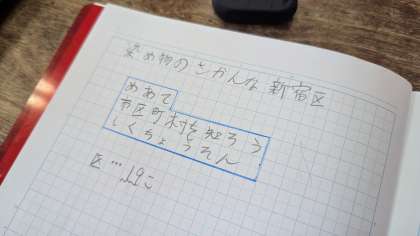 染め物のさかんな新宿区
めあて
市区町村を知ろう
しくちょうそん
区…